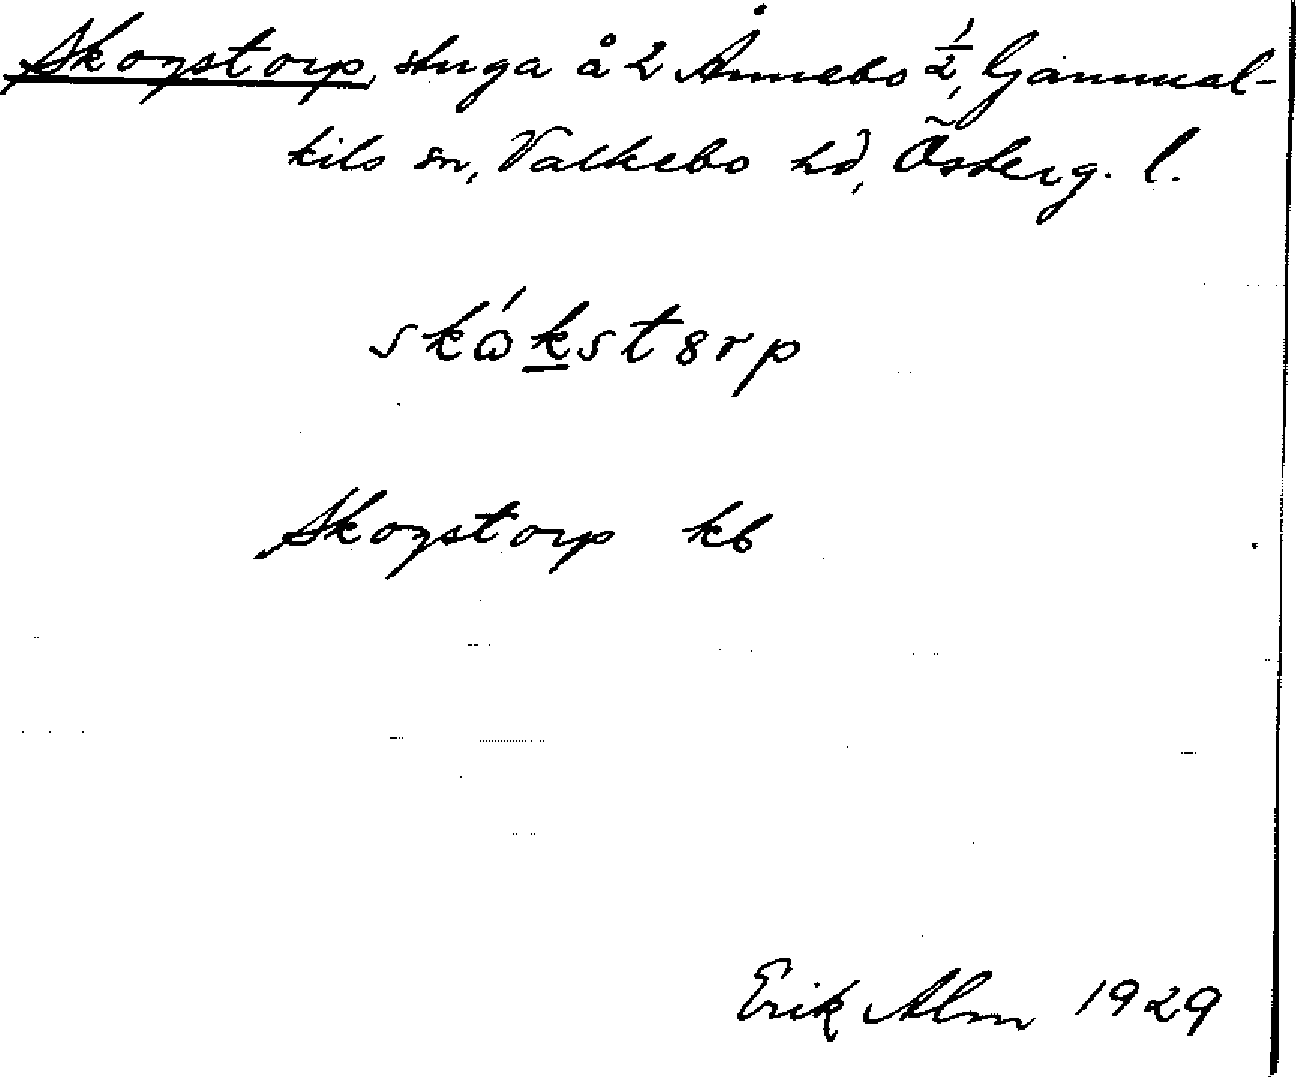 Skogstorp, stuga å 2 Ånnebo 1/2, Gammal-
kils sn, Valkebo hd, Österg. l.
skɷ́kstȣrp
Skogstorp kb
Erik Alm 1929